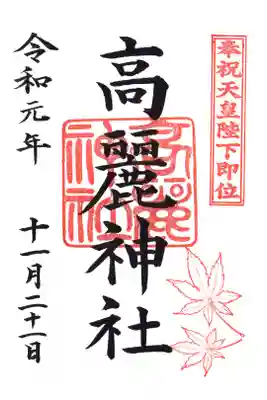 奉祝天皇陛下即位
高麗神社
令和元年 十一月二十一日
高麗神社